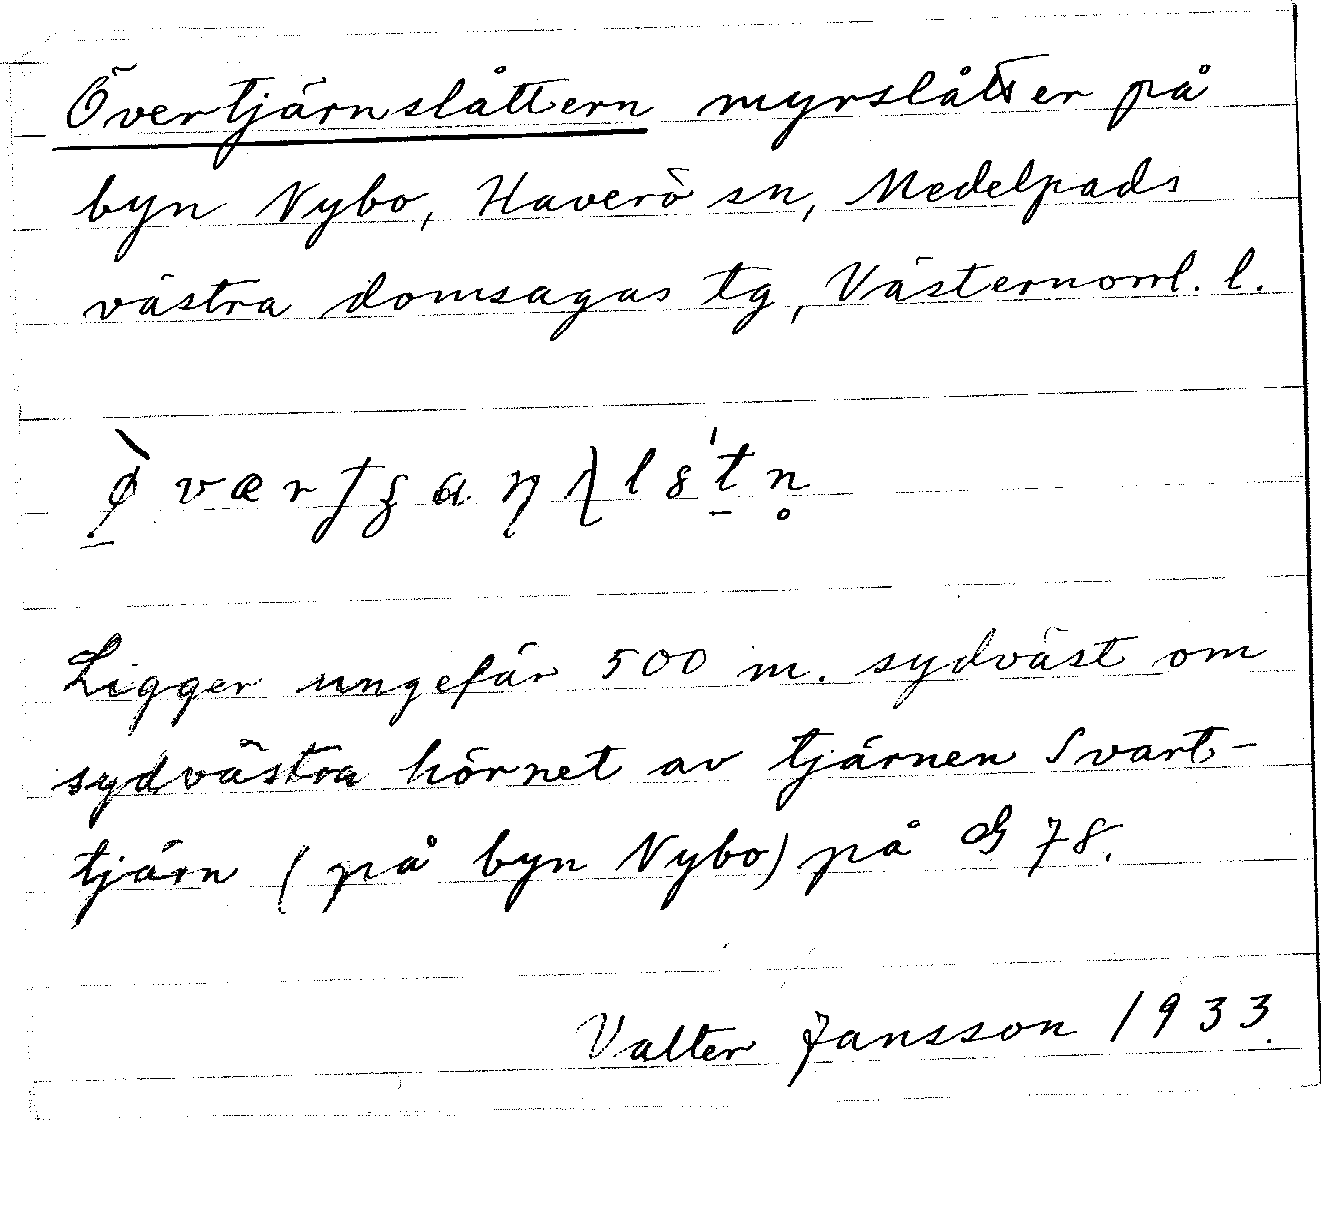 Övertjärnslåttern myrslåtter på
byn Nybo, Haverö sn, Medelpads
västra domsagas tg, Västernorrl. l.
Ligger ungefär 500 m. sydväst om
sydvästra hörnet av tjärnen Svart-
tjärn (på byn Nybo) på G 78.
Valter Jansson 1933.